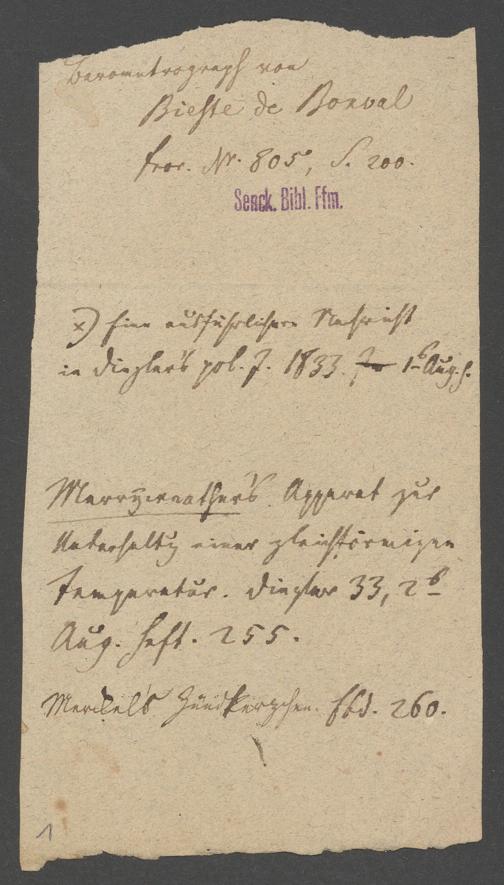 Barometrograph von
Bieste de Bonval
Fror. Nr. 805, S. 200.
Senck. Bibl. Ffm.
x) Eine ausführlichere Nachricht
in Dingler's pol. J. 1833. 1s Aug. h.
Merryweather's Apparat zur
Unterhaltg einer gleichförmigen
Temperatur. Dingler 33, 2s
Aug. Heft. 255.
Merckel's Zündkerzchen. Ebd. 260.
1